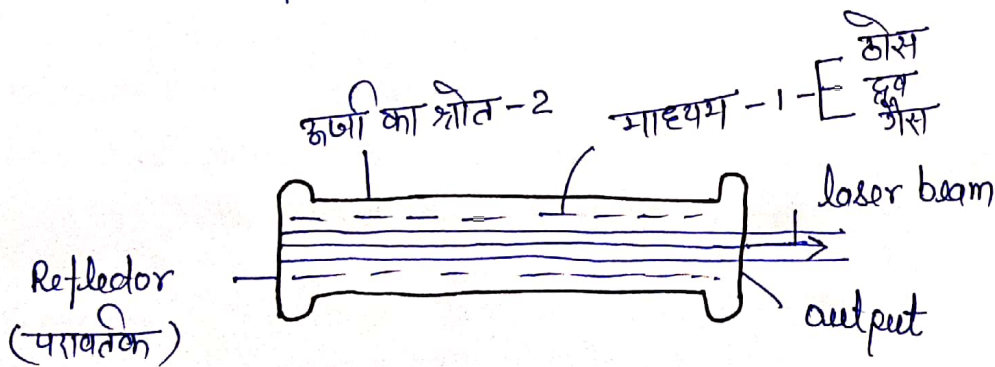 ठोस
ऊर्जा का श्रोत - 2 माध्यम - 1 - द्रव
गैस
laser beam
Reflector
(परावर्तक)
output